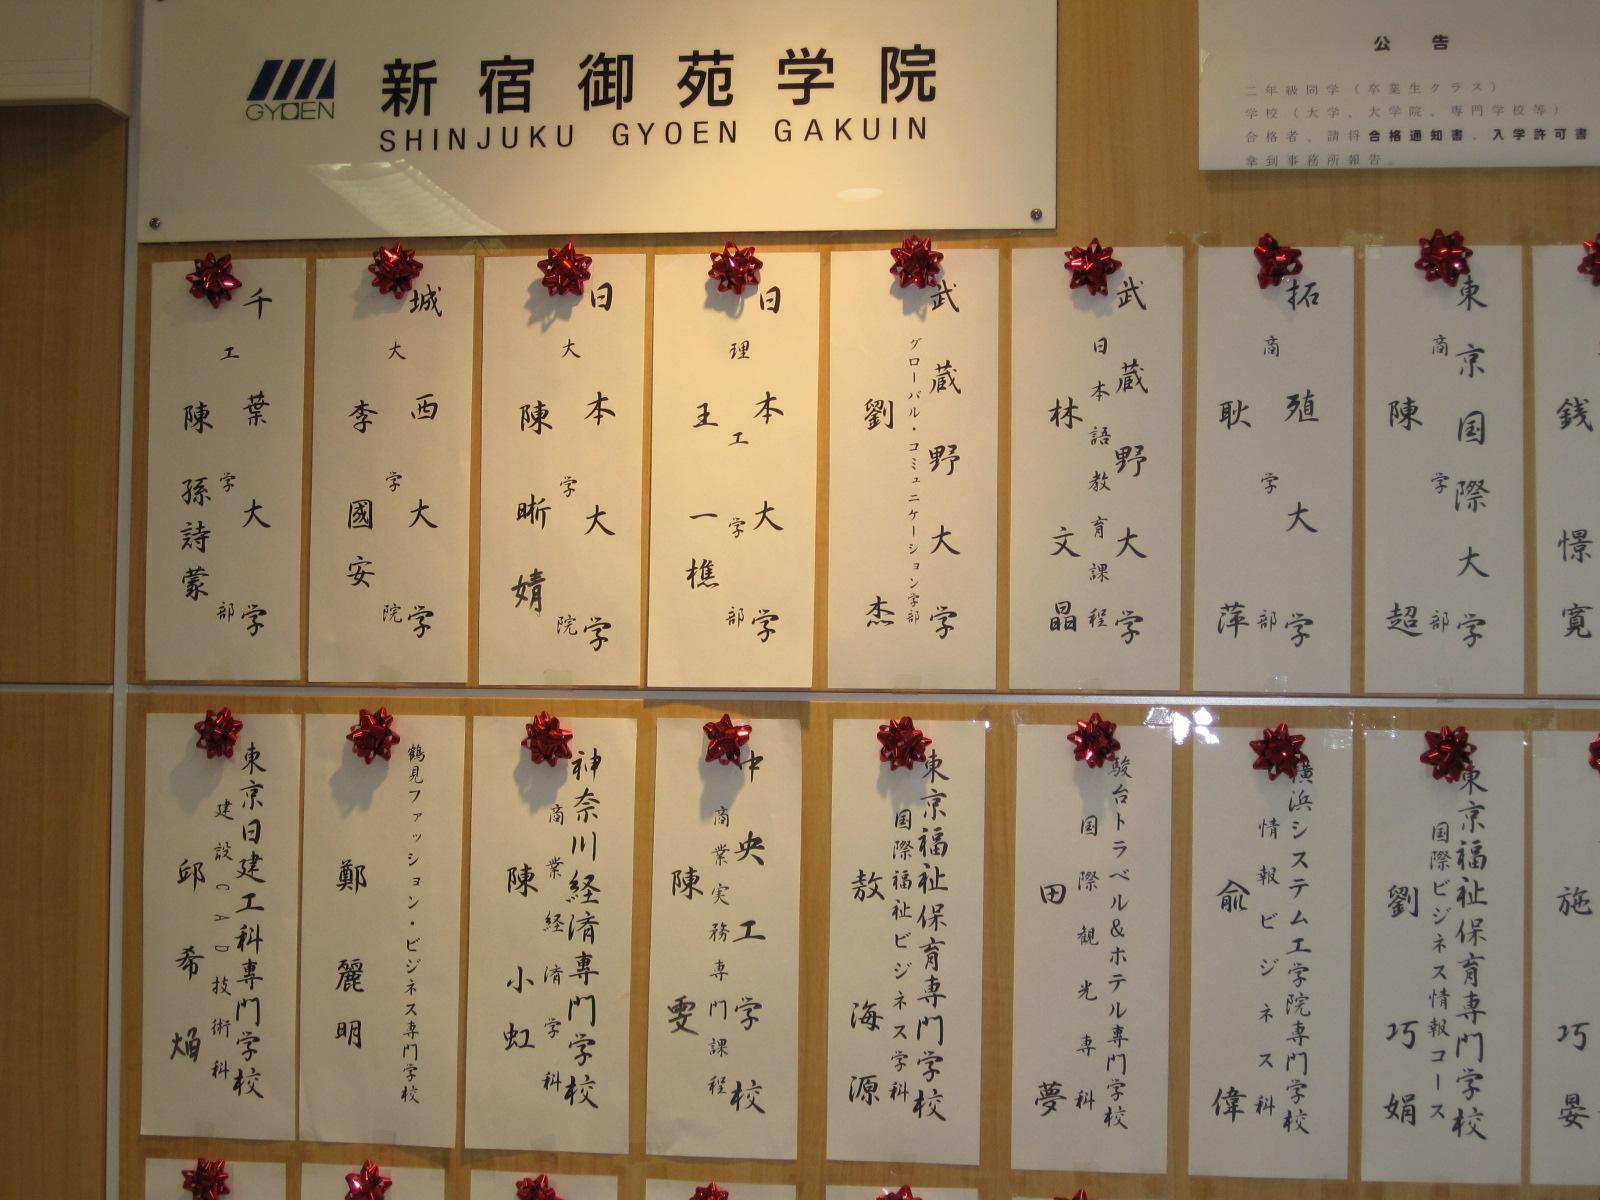 GYOEN
新宿御苑学院
SHINJUKU GYOEN GAKUIN
公 告
二年級同学（卒業生クラス）
学校（大学、大学院、専門学校等）
合格者、請将合格通知書、入学許可書
拿到事務所報告。
千葉大学
工学部
陳孫詩蒙
城西大学
大学院
李國安
日本大学
大学院
陳晰婧
日本大学
理工学部
王一樵
武蔵野大学
グローバル・コミュニケーション学部
劉杰
武蔵野大学
日本語教育課程
林文晶
拓殖大学
商学部
耿萍
東京国際大学
商学部
陳超
銭憬寛
東京日建工科専門学校
建設CAD技術科
邱希焔
鶴見ファッション・ビジネス専門学校
鄭麗明
神奈川経済専門学校
商業経済学科
陳小虹
中央工学校
商業実務専門課程
陳雯
東京福祉保育専門学校
国際福祉ビジネス学科
敖海源
駿台トラベル&ホテル専門学校
国際観光専科
田夢
横浜システム工学院専門学校
情報ビジネス科
兪偉
東京福祉保育専門学校
国際ビジネス情報コース
劉巧娟
施巧晏